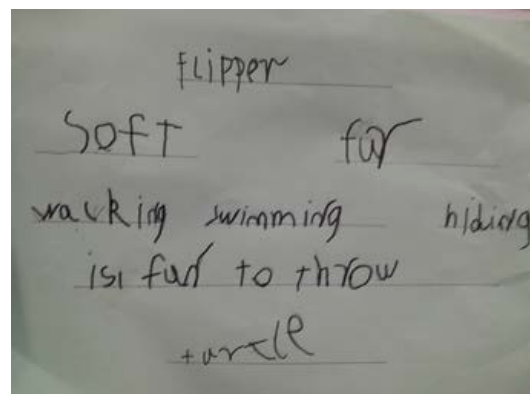 flipper
Soft fur
walking swimming hiding
is fun to throw
turtle